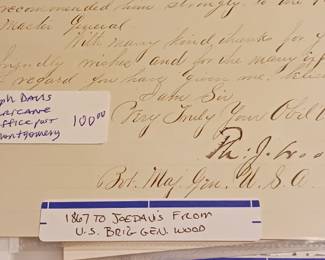 recommended him strongly to the
Master General
With many kind thanks for y
friendly wishes and for the many
of regard you have given me,
I am Sir
Very Truly Your Obt
Th: J. Wood
Bvt. Maj. Gen. U.S.A.
DAVIS
OFFICE POST
MONTGOMERY
100.00
1867 TO JOE DAVIS FROM
U.S. BRIG GEN. WOOD